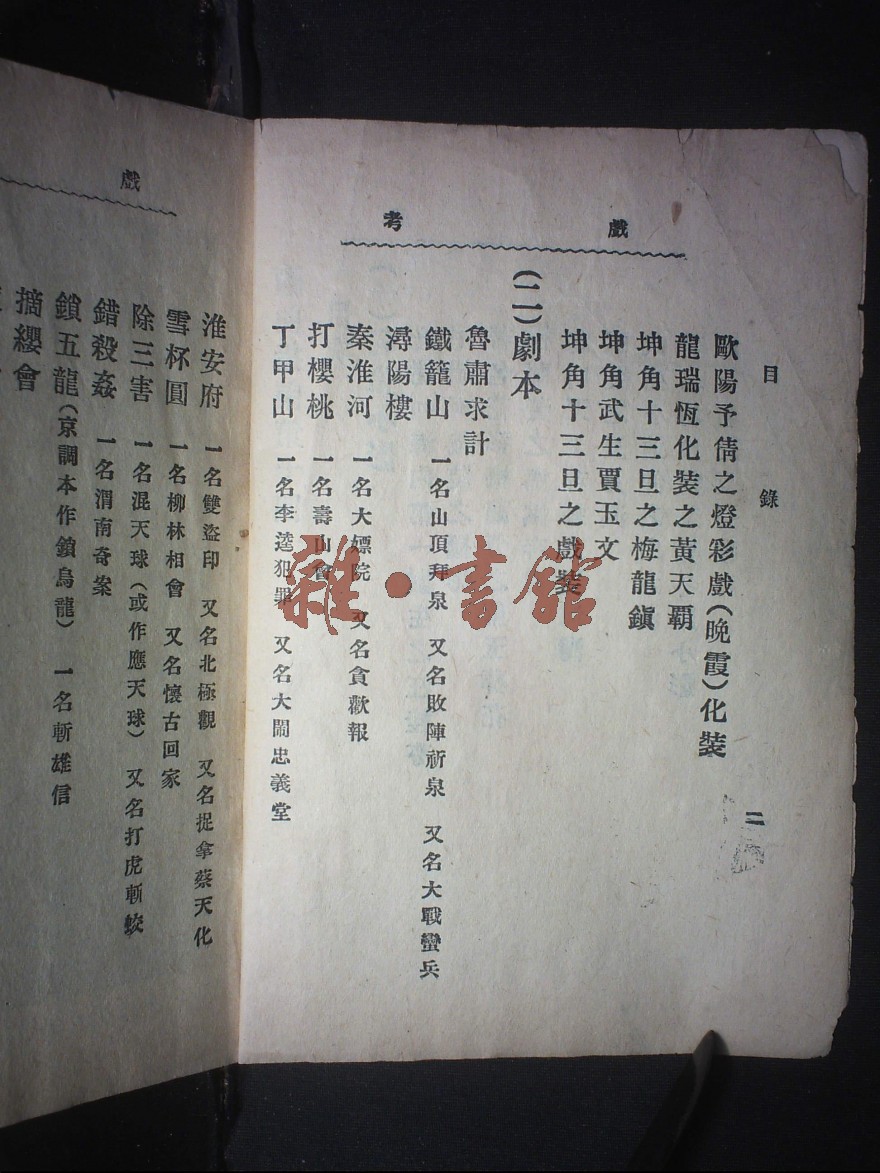 戲考
目錄 二
歐陽予倩之燈彩戲(晚霞)化裝
龍瑞恆化裝之黃天霸
坤角十三旦之梅龍鎭
坤角武生賈玉文
坤角十三旦之戲裝
(二)劇本
魯肅求計
鐵籠山 一名山頂拜泉 又名敗陣祈泉 又名大戰蠻兵
潯陽樓
秦淮河 一名大嫖院 又名貪歡報
打櫻桃 一名壽山會
丁甲山 一名李逵犯罪 又名大鬧忠義堂
戲
淮安府 一名雙盜印 又名北極觀 又名捉拿蔡天化
雪杯圓 一名柳林相會 又名懷古回家
除三害 一名混天球(或作應天球) 又名打虎斬蛟
錯殺姦 一名渭南奇案
鎖五龍(京調本作鎖烏龍) 一名斬雄信
摘纓會
雜·書館